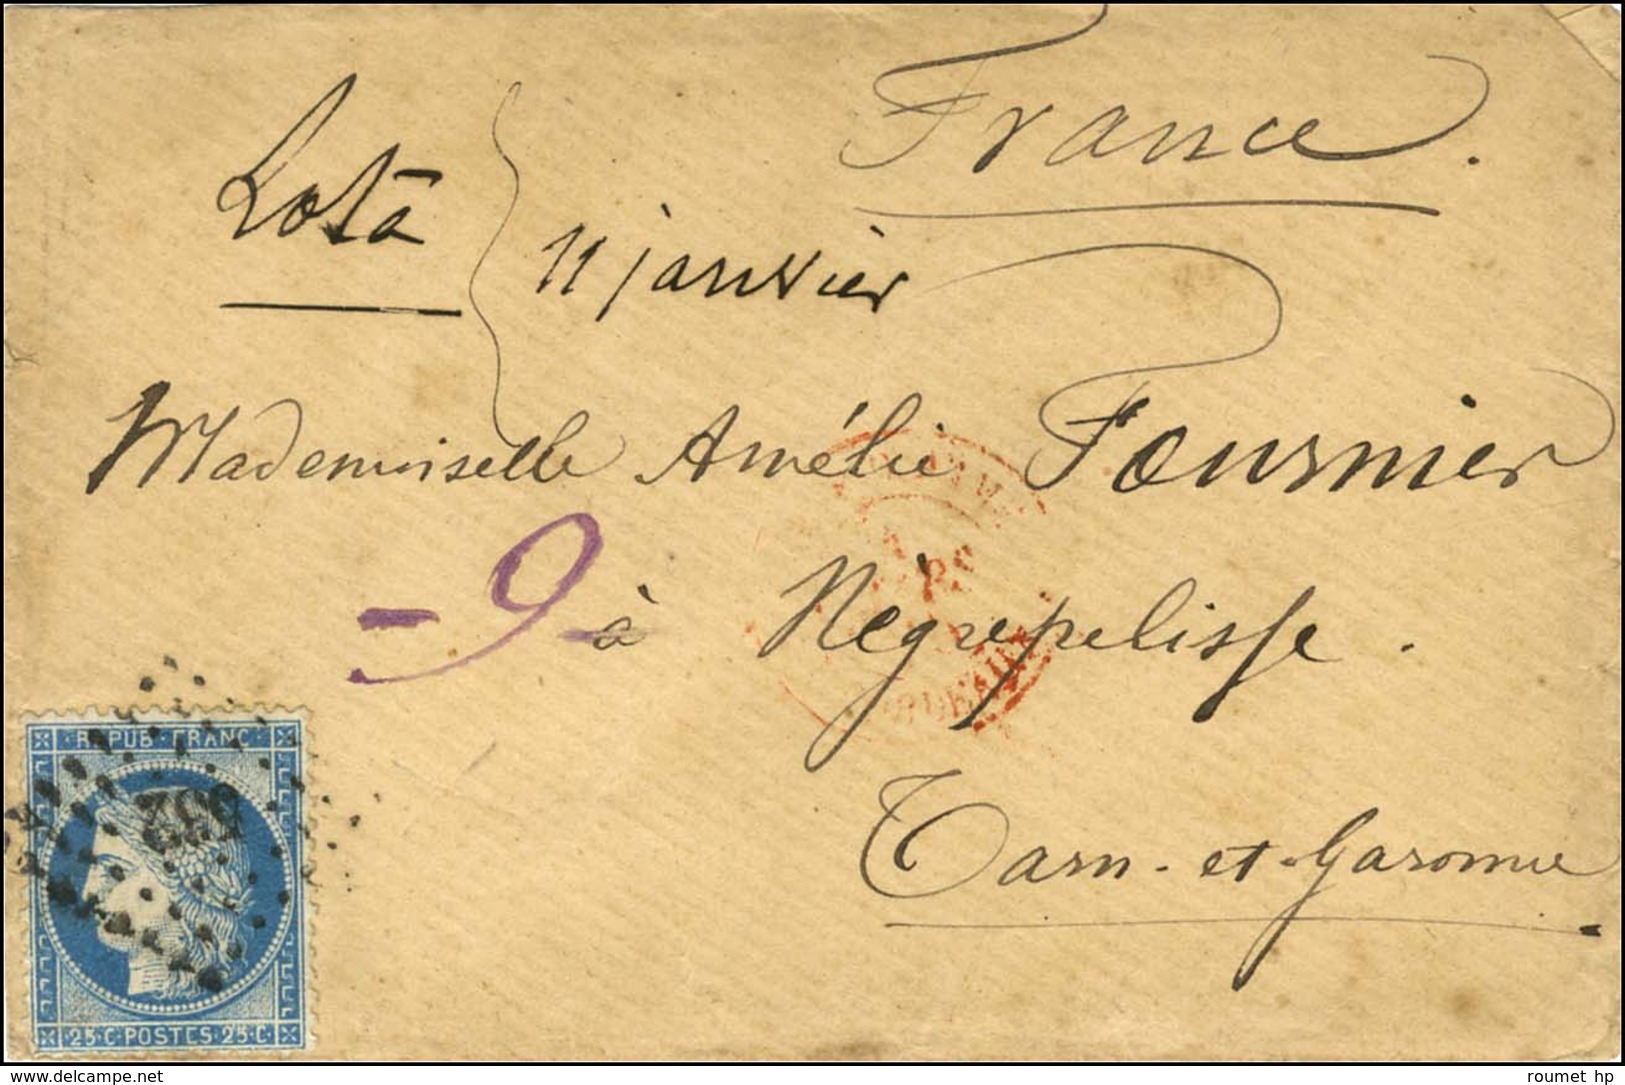 France.
Lota
11 janvier
Mademoiselle Amélie Fournier
-9-
à Négrepelisse.
Tarn-et-Garonne
REPUB FRANC
532
25·C·POSTES·25·C·
www.delcampe.net
roumet_hp